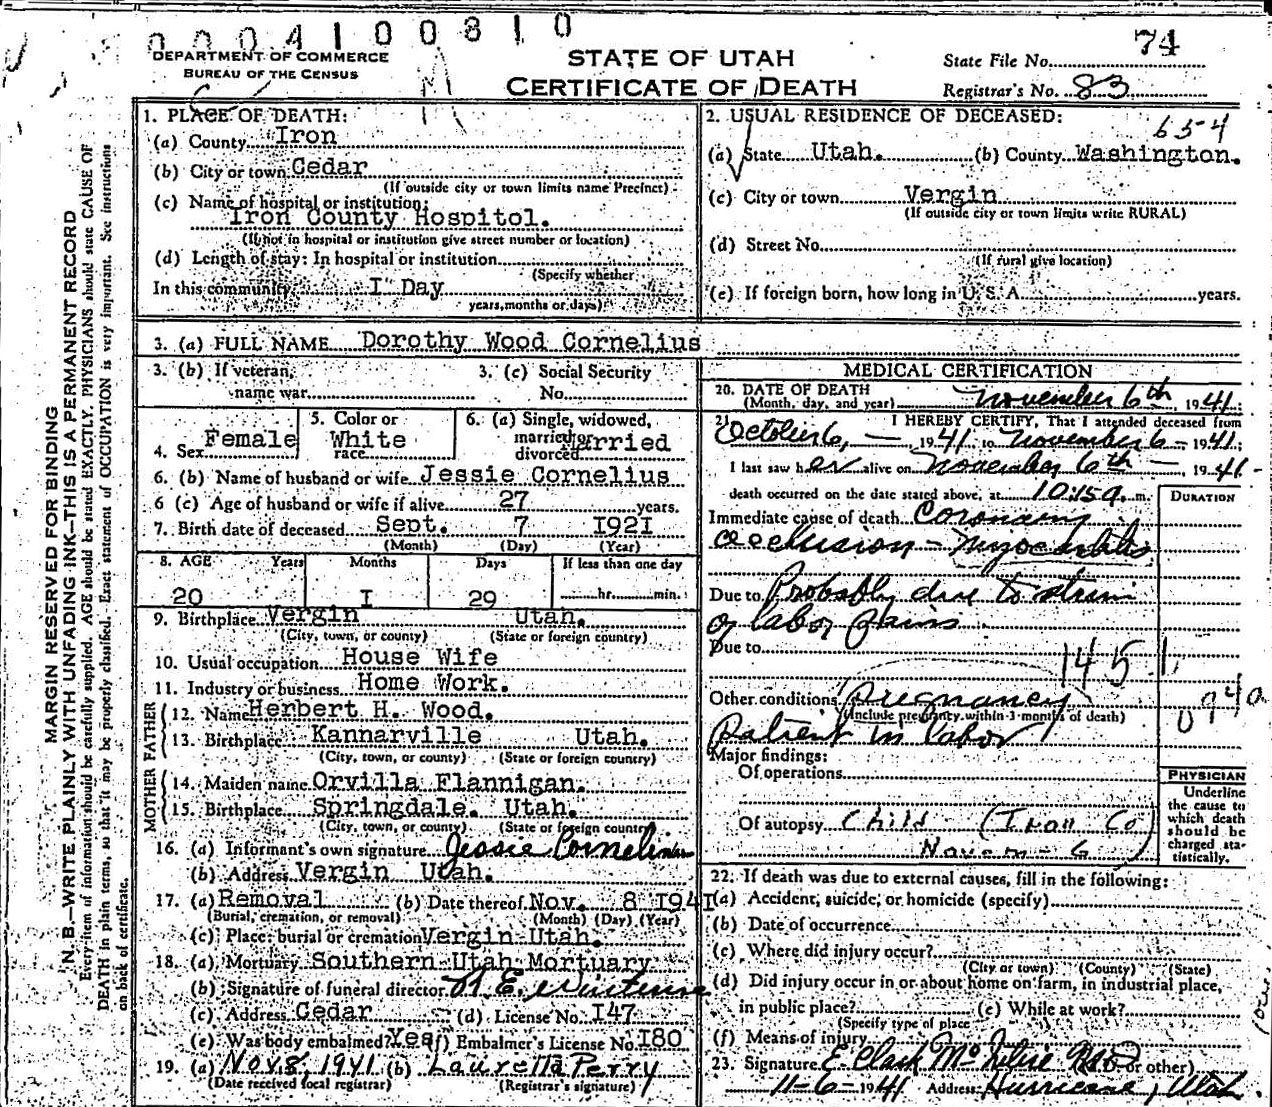 000410 0810
74
DEPARTMENT OF COMMERCE
BUREAU OF THE CENSUS
STATE OF UTAH
CERTIFICATE OF DEATH
State File No.
Registrar's No. 83
MARGIN RESERVED FOR BINDING
N. B.—WRITE PLAINLY WITH UNFADING INK—THIS IS A PERMANENT RECORD
Every item of information should be carefully supplied. AGE should be stated EXACTLY. PHYSICIANS should state CAUSE OF
DEATH in plain terms, so that it may be properly classified. Exact statement of OCCUPATION is very important. See instructions
on back of certificate.
1. PLACE OF DEATH:
(a) County Iron
(b) City or town Cedar
(If outside city or town limits name Precinct)
(c) Name of hospital or institution:
Iron County Hospitol.
(If not in hospital or institution give street number or location)
(d) Length of stay: In hospital or institution
(Specify whether
In this community I Day
years, months or days)
2. USUAL RESIDENCE OF DECEASED:
654
(a) State Utah. (b) County Washington.
(c) City or town Vergin
(If outside city or town limits write RURAL)
(d) Street No.
(If rural give location)
(e) If foreign born, how long in U. S. A. years.
3. (a) FULL NAME Dorothy Wood Cornelius
3. (b) If veteran,
name war
3. (c) Social Security
No.
4. Sex Female
5. Color or
race White
6. (a) Single, widowed,
married or
divorced Married
6. (b) Name of husband or wife Jessie Cornelius
6 (c) Age of husband or wife if alive 27 years.
7. Birth date of deceased Sept. 7 I92I
(Month) (Day) (Year)
8. AGE Years Months Days If less than one day
20 I 29 hr. min.
9. Birthplace Vergin Utah.
(City, town, or county) (State or foreign country)
10. Usual occupation House Wife
11. Industry or business Home Work.
FATHER
12. Name Herbert H. Wood.
13. Birthplace Kannarville Utah.
(City, town, or county) (State or foreign country)
MOTHER
14. Maiden name Orvilla Flannigan.
15. Birthplace Springdale. Utah.
(City, town, or county) (State or foreign country)
16. (a) Informant's own signature Jessie Cornelius
(b) Address Vergin Utah.
17. (a) Removal (b) Date thereof Nov. 8 I94I
(Burial, cremation, or removal) (Month) (Day) (Year)
(c) Place: burial or cremation Vergin Utah.
18. (a) Mortuary Southern Utah Mortuary
(b) Signature of funeral director
(c) Address Cedar (d) License No. I47
(e) Was body embalmed? Yes (f) Embalmer's License No. I80
19. (a) Nov 8, 1941 (b) Laurella Perry
(Date received local registrar) (Registrar's signature)
MEDICAL CERTIFICATION
20. DATE OF DEATH
(Month, day, and year) November 6th, 1941
21. I HEREBY CERTIFY, That I attended deceased from
October 6, — 1941 to November 6 - 1941;
I last saw her alive on November 6th — 1941-
death occurred on the date stated above, at 10:15 a. m.
DURATION
Immediate cause of death Coronary
occlusion - myocarditis
Due to Probably due to strain
of labor pains
Due to
1451
094a
Other conditions Pregnancy
(Include pregnancy within 3 months of death)
Patient in labor
Major findings:
Of operations
Of autopsy Child - (Iron Co
Novem - 6)
PHYSICIAN
Underline
the cause to
which death
should be
charged sta-
tistically.
22. If death was due to external causes, fill in the following:
(a) Accident, suicide, or homicide (specify)
(b) Date of occurrence
(c) Where did injury occur?
(City or town) (County) (State)
(d) Did injury occur in or about home on farm, in industrial place,
in public place? (e) While at work?
(Specify type of place
(f) Means of injury
23. Signature E. Clark M. D. or other)
11-6-1941 Address Hurricane, Utah